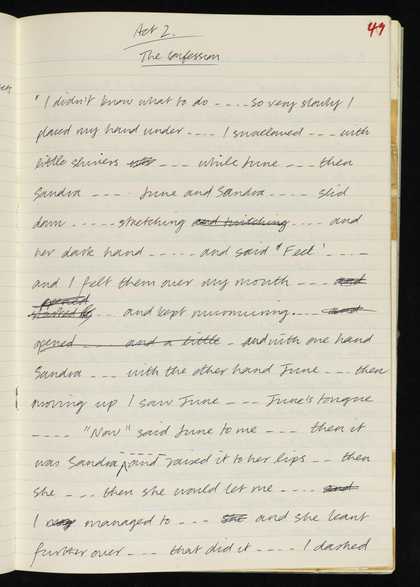 49
Act 2.
The Confession
"I didn't know what to do - - - . so very slowly I
placed my hand under - - - . I swallowed - - - with
little shivers - - - while June - - - then
Sandra - - - . June and Sandra - - - - slid
down - - - - - stretching and twitching - - - . and
her dark hand - - - - . and said "Feel' - - - -
and I felt them over my mouth - - - and
opened
started by - . and kept murmuring - - - and
opened - - - - - and a little - and with one hand
Sandra - - . with the other hand June - - - then
moving up I saw June - - - June's tongue
- - - - "Now" said June to me - - - then it
was Sandra - - - - and raised it to her lips - - then
she - - - then she would let me - - - - and
I managed to - - - she and she leant
further over - - - that did it - - - - I dashed